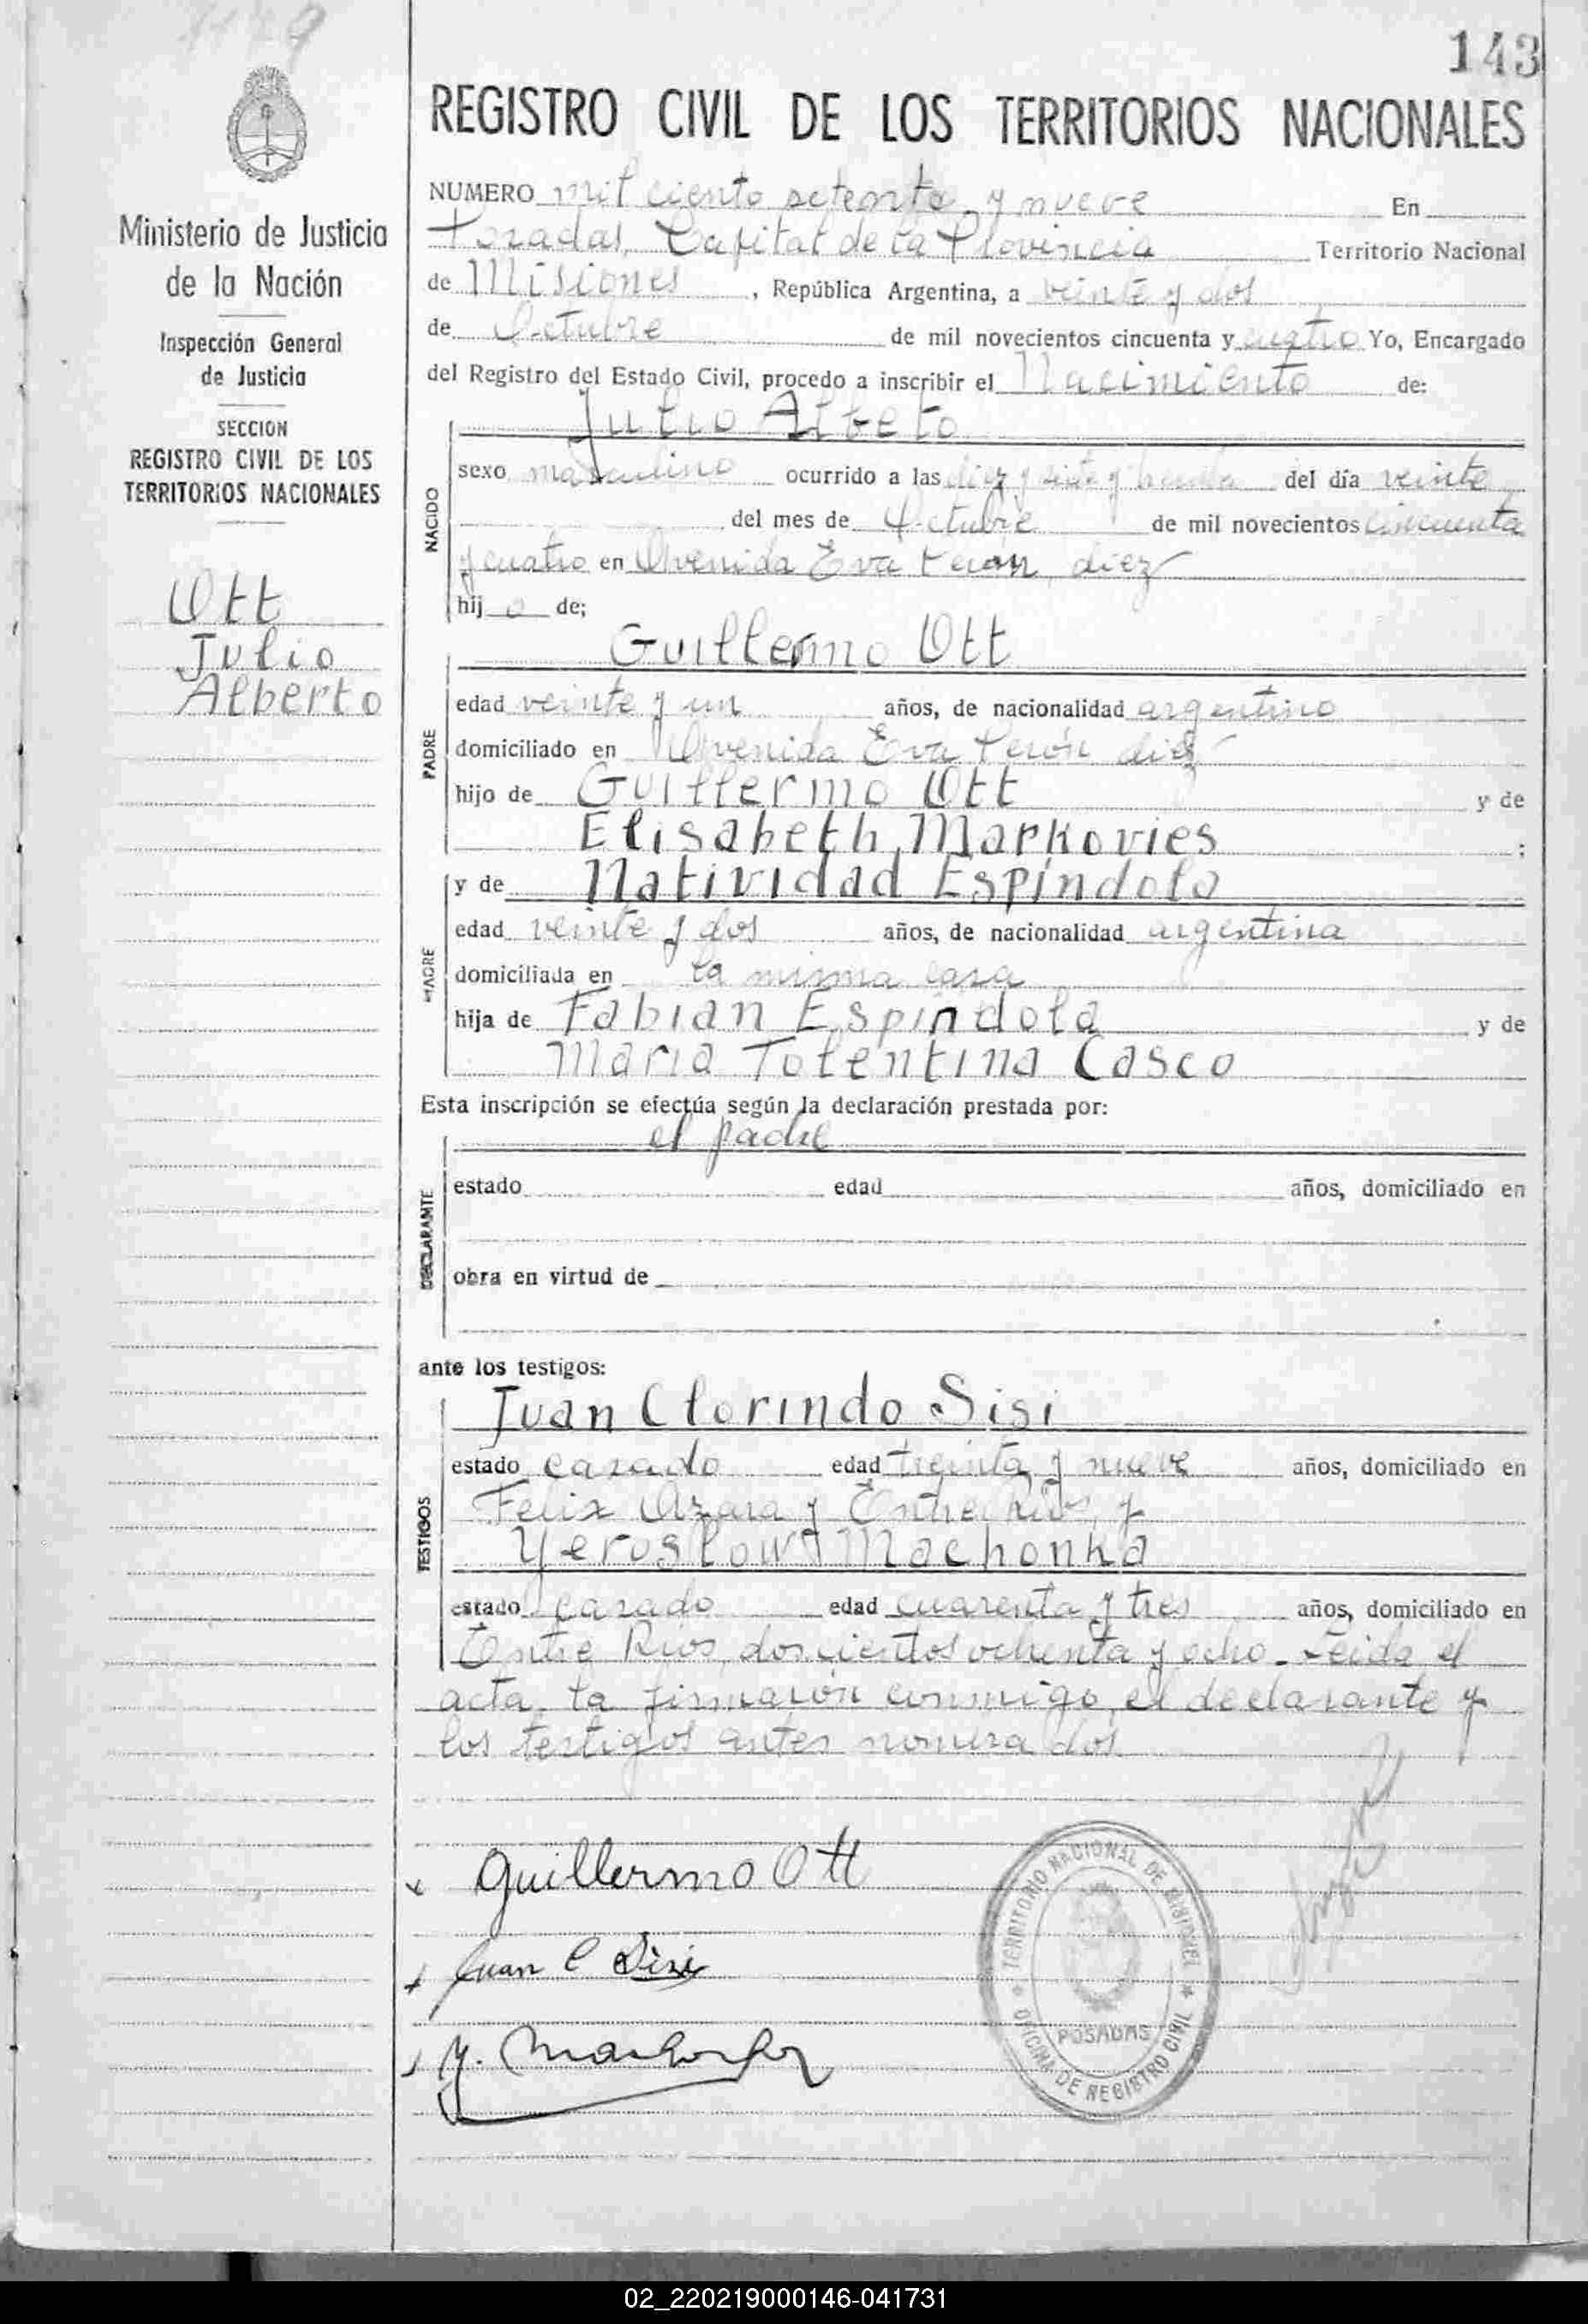 1179
143
REGISTRO CIVIL DE LOS TERRITORIOS NACIONALES
Ministerio de Justicia
de la Nación
Inspección General
de Justicia
SECCION
REGISTRO CIVIL DE LOS
TERRITORIOS NACIONALES
Ott
Julio
Alberto
NUMERO mil ciento setenta y nueve En
Posadas, Capital de la Provincia Territorio Nacional
de Misiones, República Argentina, a veinte y dos
de Octubre de mil novecientos cincuenta y cuatro Yo, Encargado
del Registro del Estado Civil, procedo a inscribir el Nacimiento de:
Julio Albeto
NACIDO
sexo masculino ocurrido a las diez y siete y treinta del día veinte
del mes de Octubre de mil novecientos cincuenta
y cuatro en Avenida Eva Perón, diez
hij o de;
Guillermo Ott
PADRE
edad veinte y un años, de nacionalidad argentino
domiciliado en Avenida Eva Perón diez
hijo de Guillermo Ott y de
Elisabeth Markovies ;
y de Natividad Espíndola
MADRE
edad veinte y dos años, de nacionalidad argentina
domiciliada en la misma casa
hija de Fabian Espíndola y de
Maria Tolentina Casco
Esta inscripción se efectúa según la declaración prestada por:
el padre
DECLARANTE
estado edad años, domiciliado en
obra en virtud de
ante los testigos:
Juan Clorindo Sisi
TESTIGOS
estado casado edad treinta y nueve años, domiciliado en
Felix Azara y Entre Ríos, y
Yeroslow Machonka
estado casado edad cuarenta y tres años, domiciliado en
Entre Ríos, doscientos ochenta y ocho. Leida el
acta, la firmaron conmigo, el declarante y
los testigos antes nombrados
Guillermo Ott
Juan C Sisi
Y. Machonka
TERRITORIO NACIONAL DE MISIONES
POSADAS
OFICINA DE REGISTRO CIVIL
02_220219000146-041731